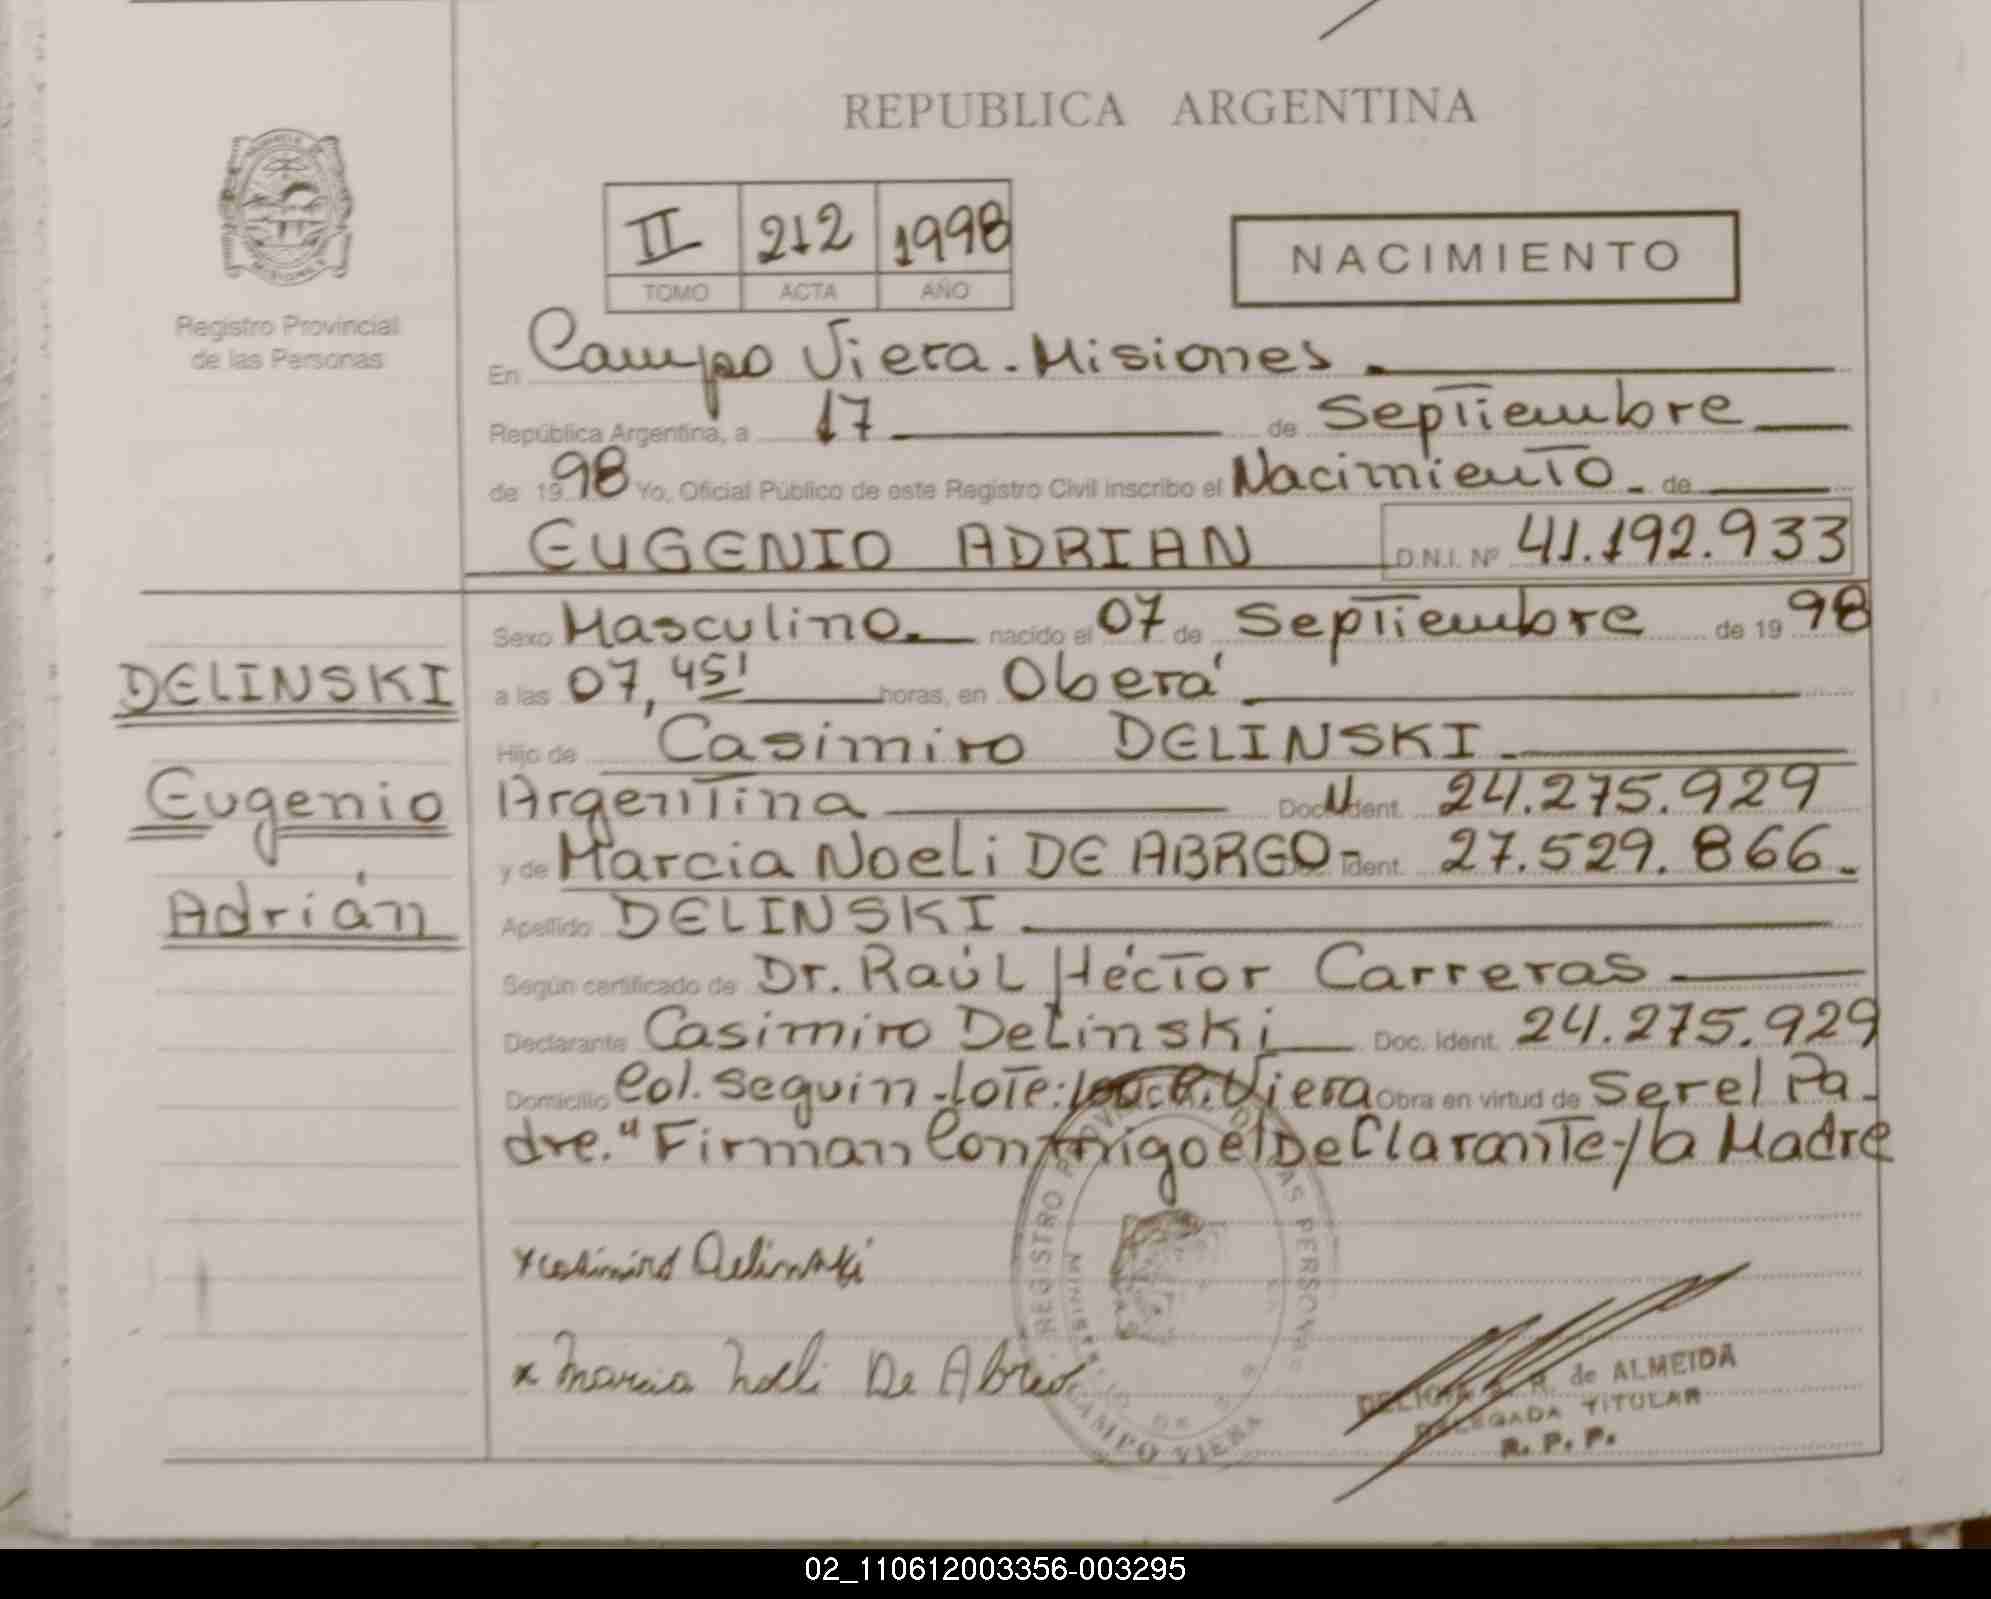 REPUBLICA ARGENTINA
II 212 1998
TOMO ACTA AÑO
NACIMIENTO
Registro Provincial
de las Personas
En Campo Viera - Misiones
República Argentina, a 17 de Septiembre
de 1998 Yo, Oficial Público de este Registro Civil inscribo el Nacimiento - de
EUGENIO ADRIAN D.N.I. Nº 41.192.933
Sexo Masculino nacido el 07 de Septiembre de 1998
DELINSKI
a las 07,45' horas, en Oberá
Hijo de Casimiro DELINSKI
Eugenio
Argentina Doc. Ident. 24.275.929
y de Marcia Noeli DE ABREO - Ident. 27.529.866
Adrián
Apellido DELINSKI
Según certificado de Dr. Raúl Héctor Carreras
Declarante Casimiro Delinski Doc. Ident. 24.275.929
Domicilio Col. Seguin - Lote: Viera Obra en virtud de Ser el Pa-
dre." Firman Conmigo el DeClarante y la Madre
x Casimiro Delinski
x Marcia Noeli De Abreo
REGISTRO DE LAS PERSONAS
CAMPO VIERA
R. de ALMEIDA
DELEGADA TITULAR
R. P. P.
02_110612003356-003295